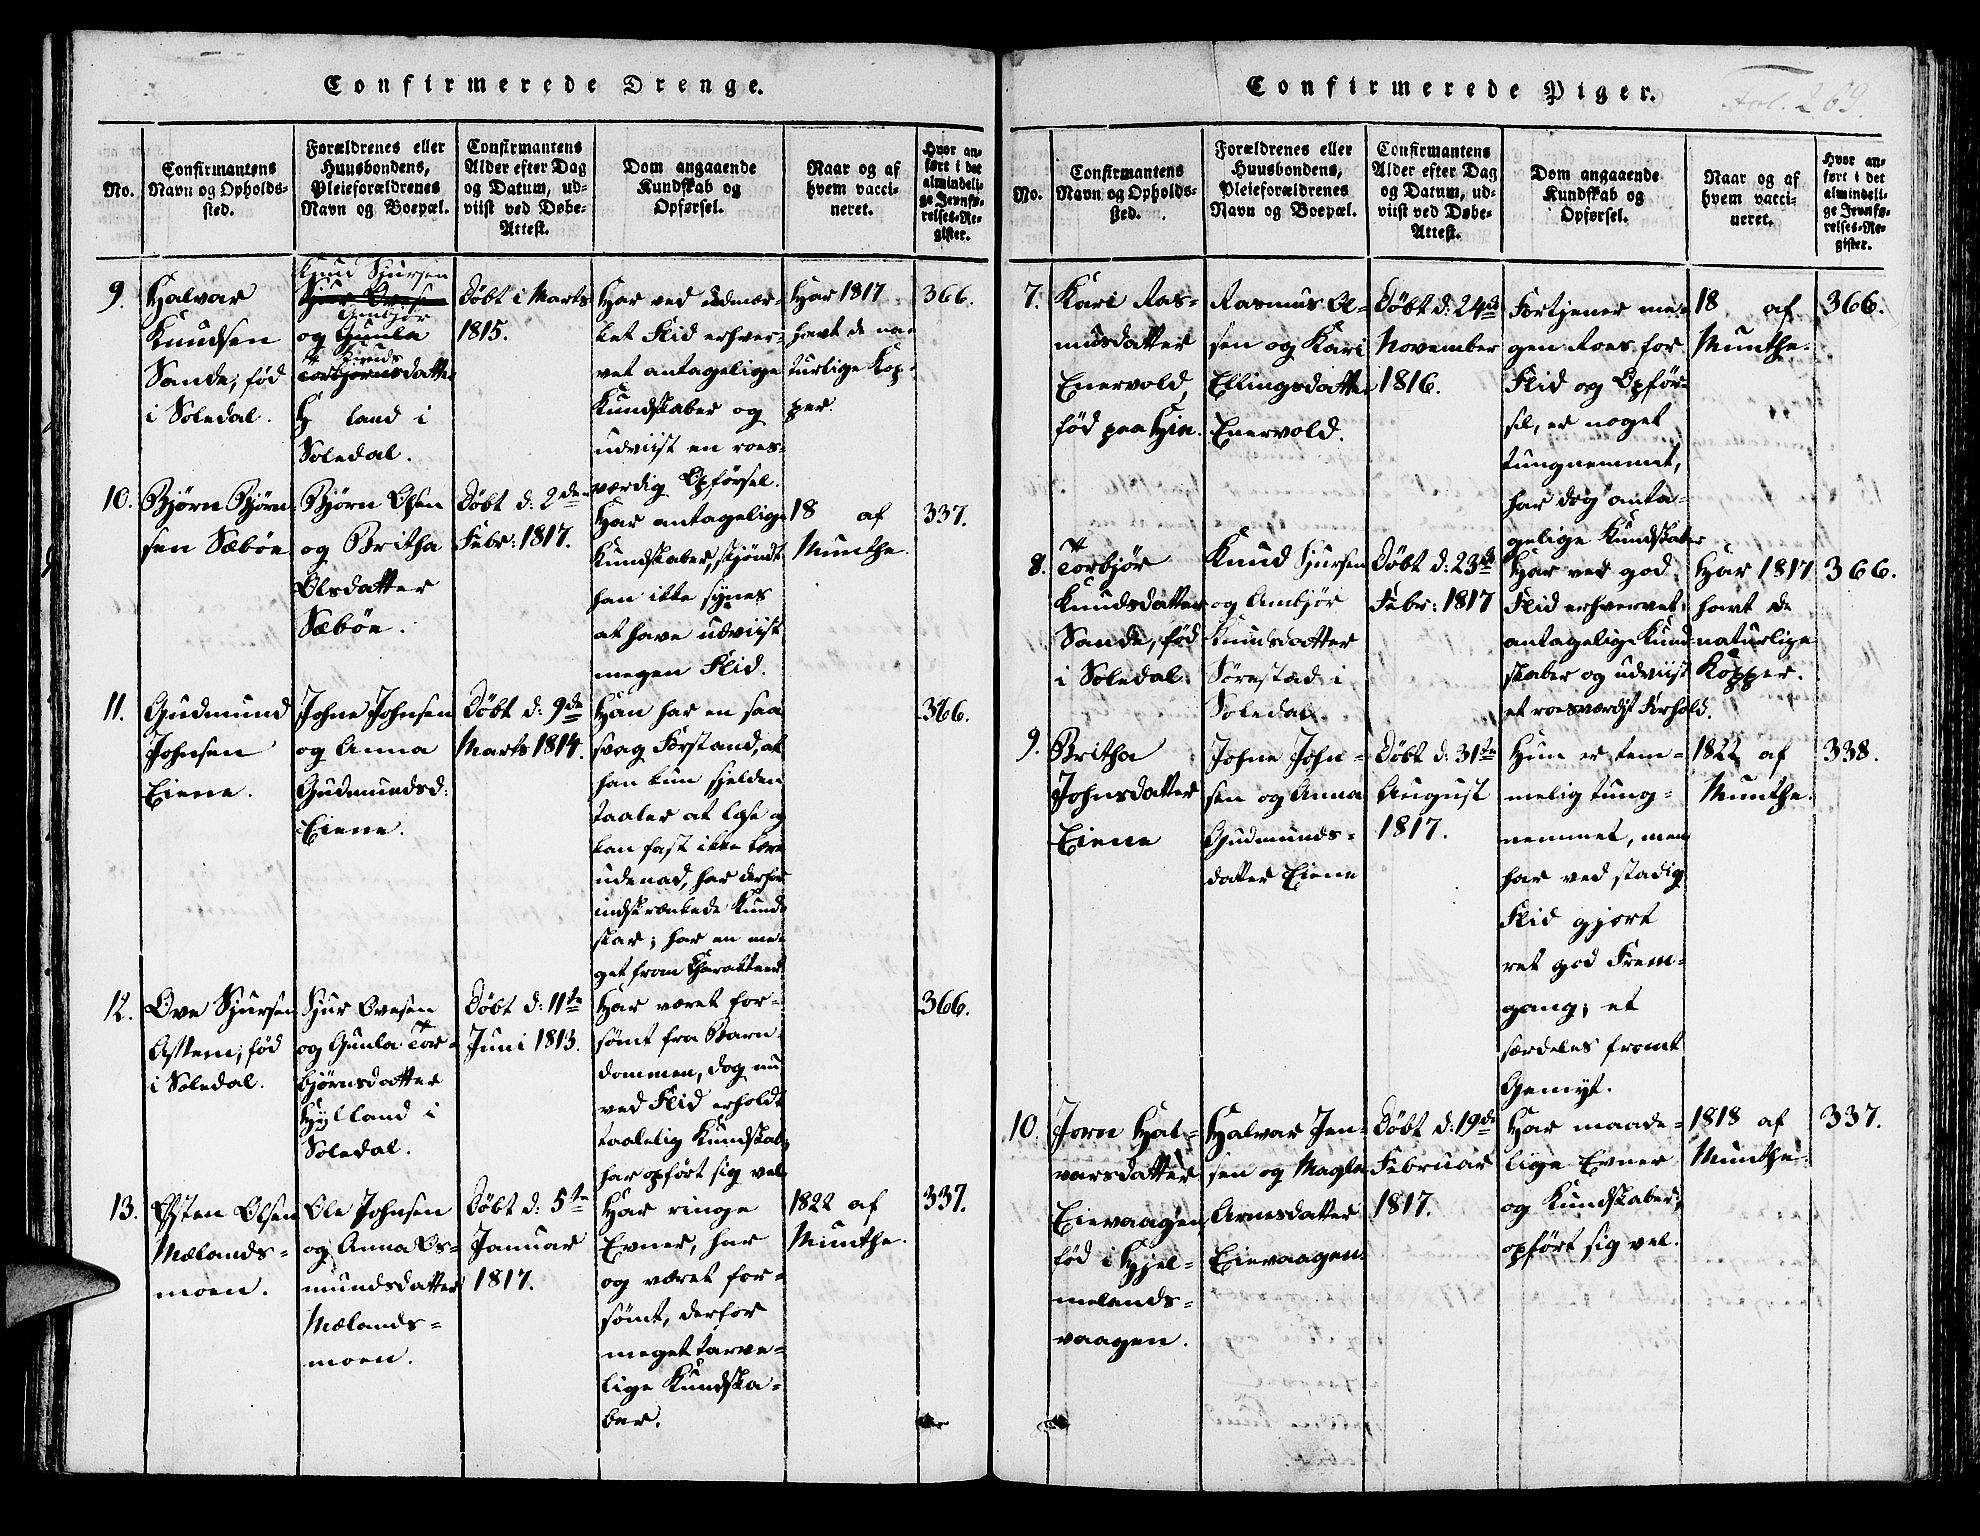 Confirmerede Drenge.
No.
Confirmantens
Navn og Opholds-
sted.
Forældrenes eller
Huusbondens,
Pleieforældrenes
Navn og Boepæl.
Confirmantens
Alder efter Dag
og Datum, ud-
viist ved Døbe-
Attest.
Dom angaaende
Kundskab og
Opførsel.
Naar og af
hvem vacci-
neret.
Hvor an-
ført i det
almindeli-
ge Jevnfø-
relses-Re-
gister.
9.
Halvar
Knudsen
Sande, fød
i Soledal.
Knud Sjursen
Sjur Ovesen
Ambjør
og Gunla
Knuds
Torbjørnsdatter
H land i
Soledal.
Døbt i Marts
1815.
Har ved udmær-
ket Flid erhver-
vet antagelige
Kundskaber og
udviist en roes-
værdig Opførsel.
Har 1817
havt de na-
turlige Kop-
per.
366.
10.
Bjørn Bjørn-
sen Sæbøe
Bjørn Olsen
og Britha
Olsdatter
Sæbøe.
Døbt d: 2den
Febr: 1817.
Har antagelige
Kundskaber, skjøndt
han ikke synes
at have udviist
megen Flid.
18 af
Munthe.
337.
11.
Gudmund
Johnsen
Eiene.
Johne Johnsen
og Anna
Gudmundsd:
Eiene.
Døbt d: 9de
Marts 1814.
Han har en saa
svag Forstand, at
han kun sjelden
taaler at læse og
kan fast ikke lære
udenad, har derfor
indskrænkede Kund-
skar; har en me-
get from Charakteer.
366.
12.
Ove Sjursen
Astem, fød
i Soledal.
Sjur Ovesen
og Gunla Tor-
bjørnsdatter
Hylland i
Soledal.
Døbt d: 11te
Juni 1813.
Har været for-
sømt fra Barn-
dommen, dog nu
ved Flid erholdt
taalelig Kundskab,
har opført sig vel.
366.
13.
Østen Olsen
Mælands-
moen.
Ole Johnsen
og Anna Os-
mundsdatter
Mælands-
moen.
Døbt d: 5te
Januar
1817.
Har ringe
Evner, har
og været for-
sømt, derfor
meget tarve-
lige Kundska-
ber.
1822 af
Munthe.
337.
Confirmerede Piger.
Fol. 269.
No.
Confirmantens
Navn og Opholds-
sted.
Forældrenes eller
Huusbondens,
Pleieforældrenes
Navn og Boepæl.
Confirmantens
Alder efter Dag
og Datum, ud-
viist ved Døbe-
Attest.
Dom angaaende
Kundskab og
Opførsel.
Naar og af
hvem vacci-
neret.
Hvor an-
ført i det
almindeli-
ge Jevnfø-
relses-Re-
gister.
7.
Kari Ras-
musdatter
Enervold,
fød paa Hia.
Rasmus Ol-
sen og Kari
Ellingsdatter
Enervold.
Døbt d: 24de
November
1816.
Fortjener me-
gen Roes for
Flid og Opfør-
sel, er noget
tungnemmet,
har dog anta-
gelige Kundskaber
18 af
Munthe.
366.
8.
Torbjør
Knudsdatter
Sande, fød
i Soledal.
Knud Sjursen
og Ambjør
Knudsdatter
Sørestad i
Soledal.
Døbt d: 23de
Febr: 1817
Har ved god
Flid erhvervet
antagelige Kund-
skaber og udviist
et roesværdigt Forhold.
Har 1817
havt de
naturlige
Kopper.
366.
9.
Britha
Johnsdatter
Eiene
Johne John-
sen og Anna
Gudmunds-
datter Eiene
Døbt d: 31te
August
1817.
Hun er tem-
melig tung-
nemmet, men
har ved stadig
Flid gjort
ret god Frem-
gang; et
særdeles fromt
Gemyt.
1822 af
Munthe.
338.
10.
Jorn Hal-
varsdatter
Eievaagen,
fød i Hjel-
melands-
vaagen.
Halvar Jen-
sen og Magla
Arnesdatter
Eievaagen.
Døbt d: 19de
Februar
1817.
Har maade-
lige Evner
og Kundskaber,
opført sig vel.
1818 af
Munthe.
337.